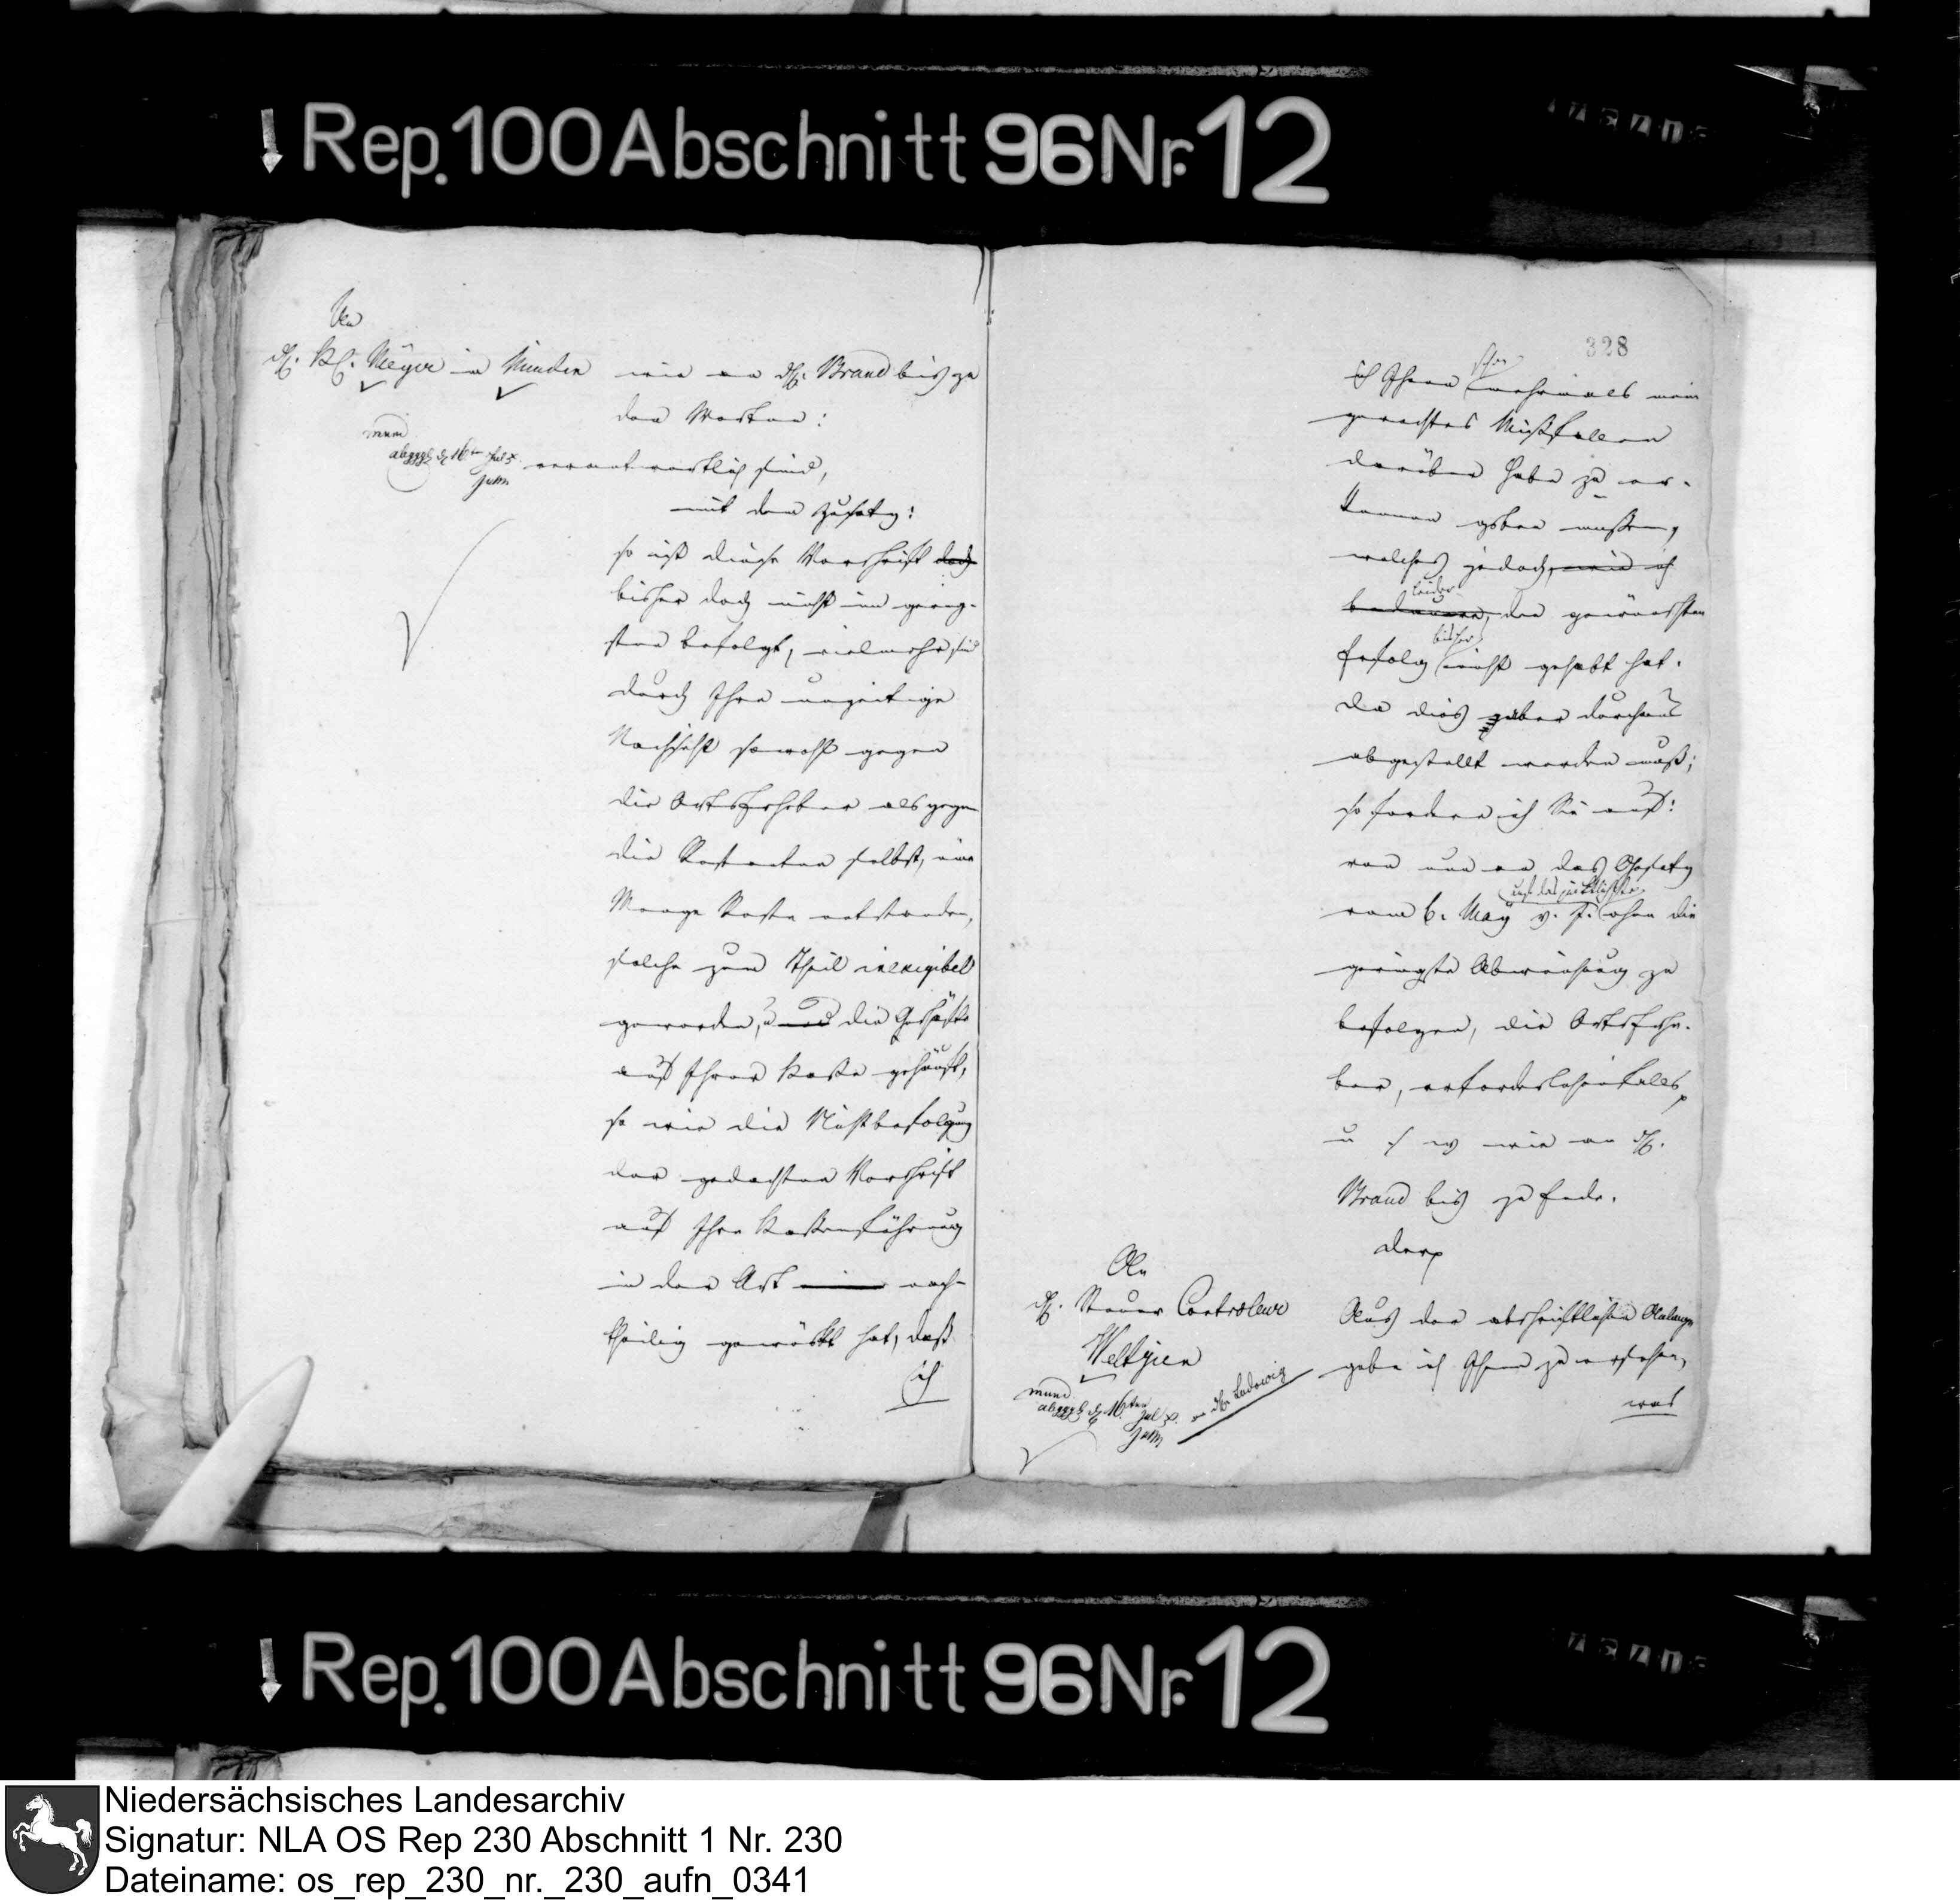 Rep. 100 Abschnitt 96 Nr. 12
An
H. Meyer in Minden
mund
wie an H. Brand bis zu
den Worten:
verantwortlich sind,
mit dem Zusatz:
so ist diese Vorschrift doch
bisher doch nicht im gering-
sten befolgt, vielmehr sind
durch Ihre unzeitige
Nachsicht sowohl gegen
die Ortserheber als gegen
die Restanten selbst, eine
Menge Reste entstanden,
solche zum Theil inexigibel
geworden, u und die Geschäfte
auf Ihrer Kasse gehäuft,
so wie die Nichtbefolgung
der gedachten Vorschrift
auf Ihre Kassenführung
in der Art nach-
theilig gewirkt hat, daß
ich
328
ich Ihnen schon mehrmals mein
gerechtes Mißfallen
darüber habe zu er-
kennen geben müssen,
welches jedoch, wie ich
bedauere, leider den gewünschten
Erfolg bisher nicht gehabt hat.
Da dies aber durchaus
abgestellt werden muß;
so fordere ich Sie auf:
von nun an das Gesetz
vom 6. May v. J. auf das pünktlichste, ohne die
geringste Abweichung zu
befolgen, die Ortserhe-
ber, erforderlichenfalls
u s w wie an H.
Brand bis zu Ende.
An
H. Steuer Controleur
Weltzien
mund
an H. Ludowig
Aus der abschriftlichen Anlage
gebe ich Ihnen zu ersehen,
was
Rep. 100 Abschnitt 96 Nr. 12
Niedersächsisches Landesarchiv
Signatur: NLA OS Rep 230 Abschnitt 1 Nr. 230
Dateiname: os_rep_230_nr._230_aufn_0341